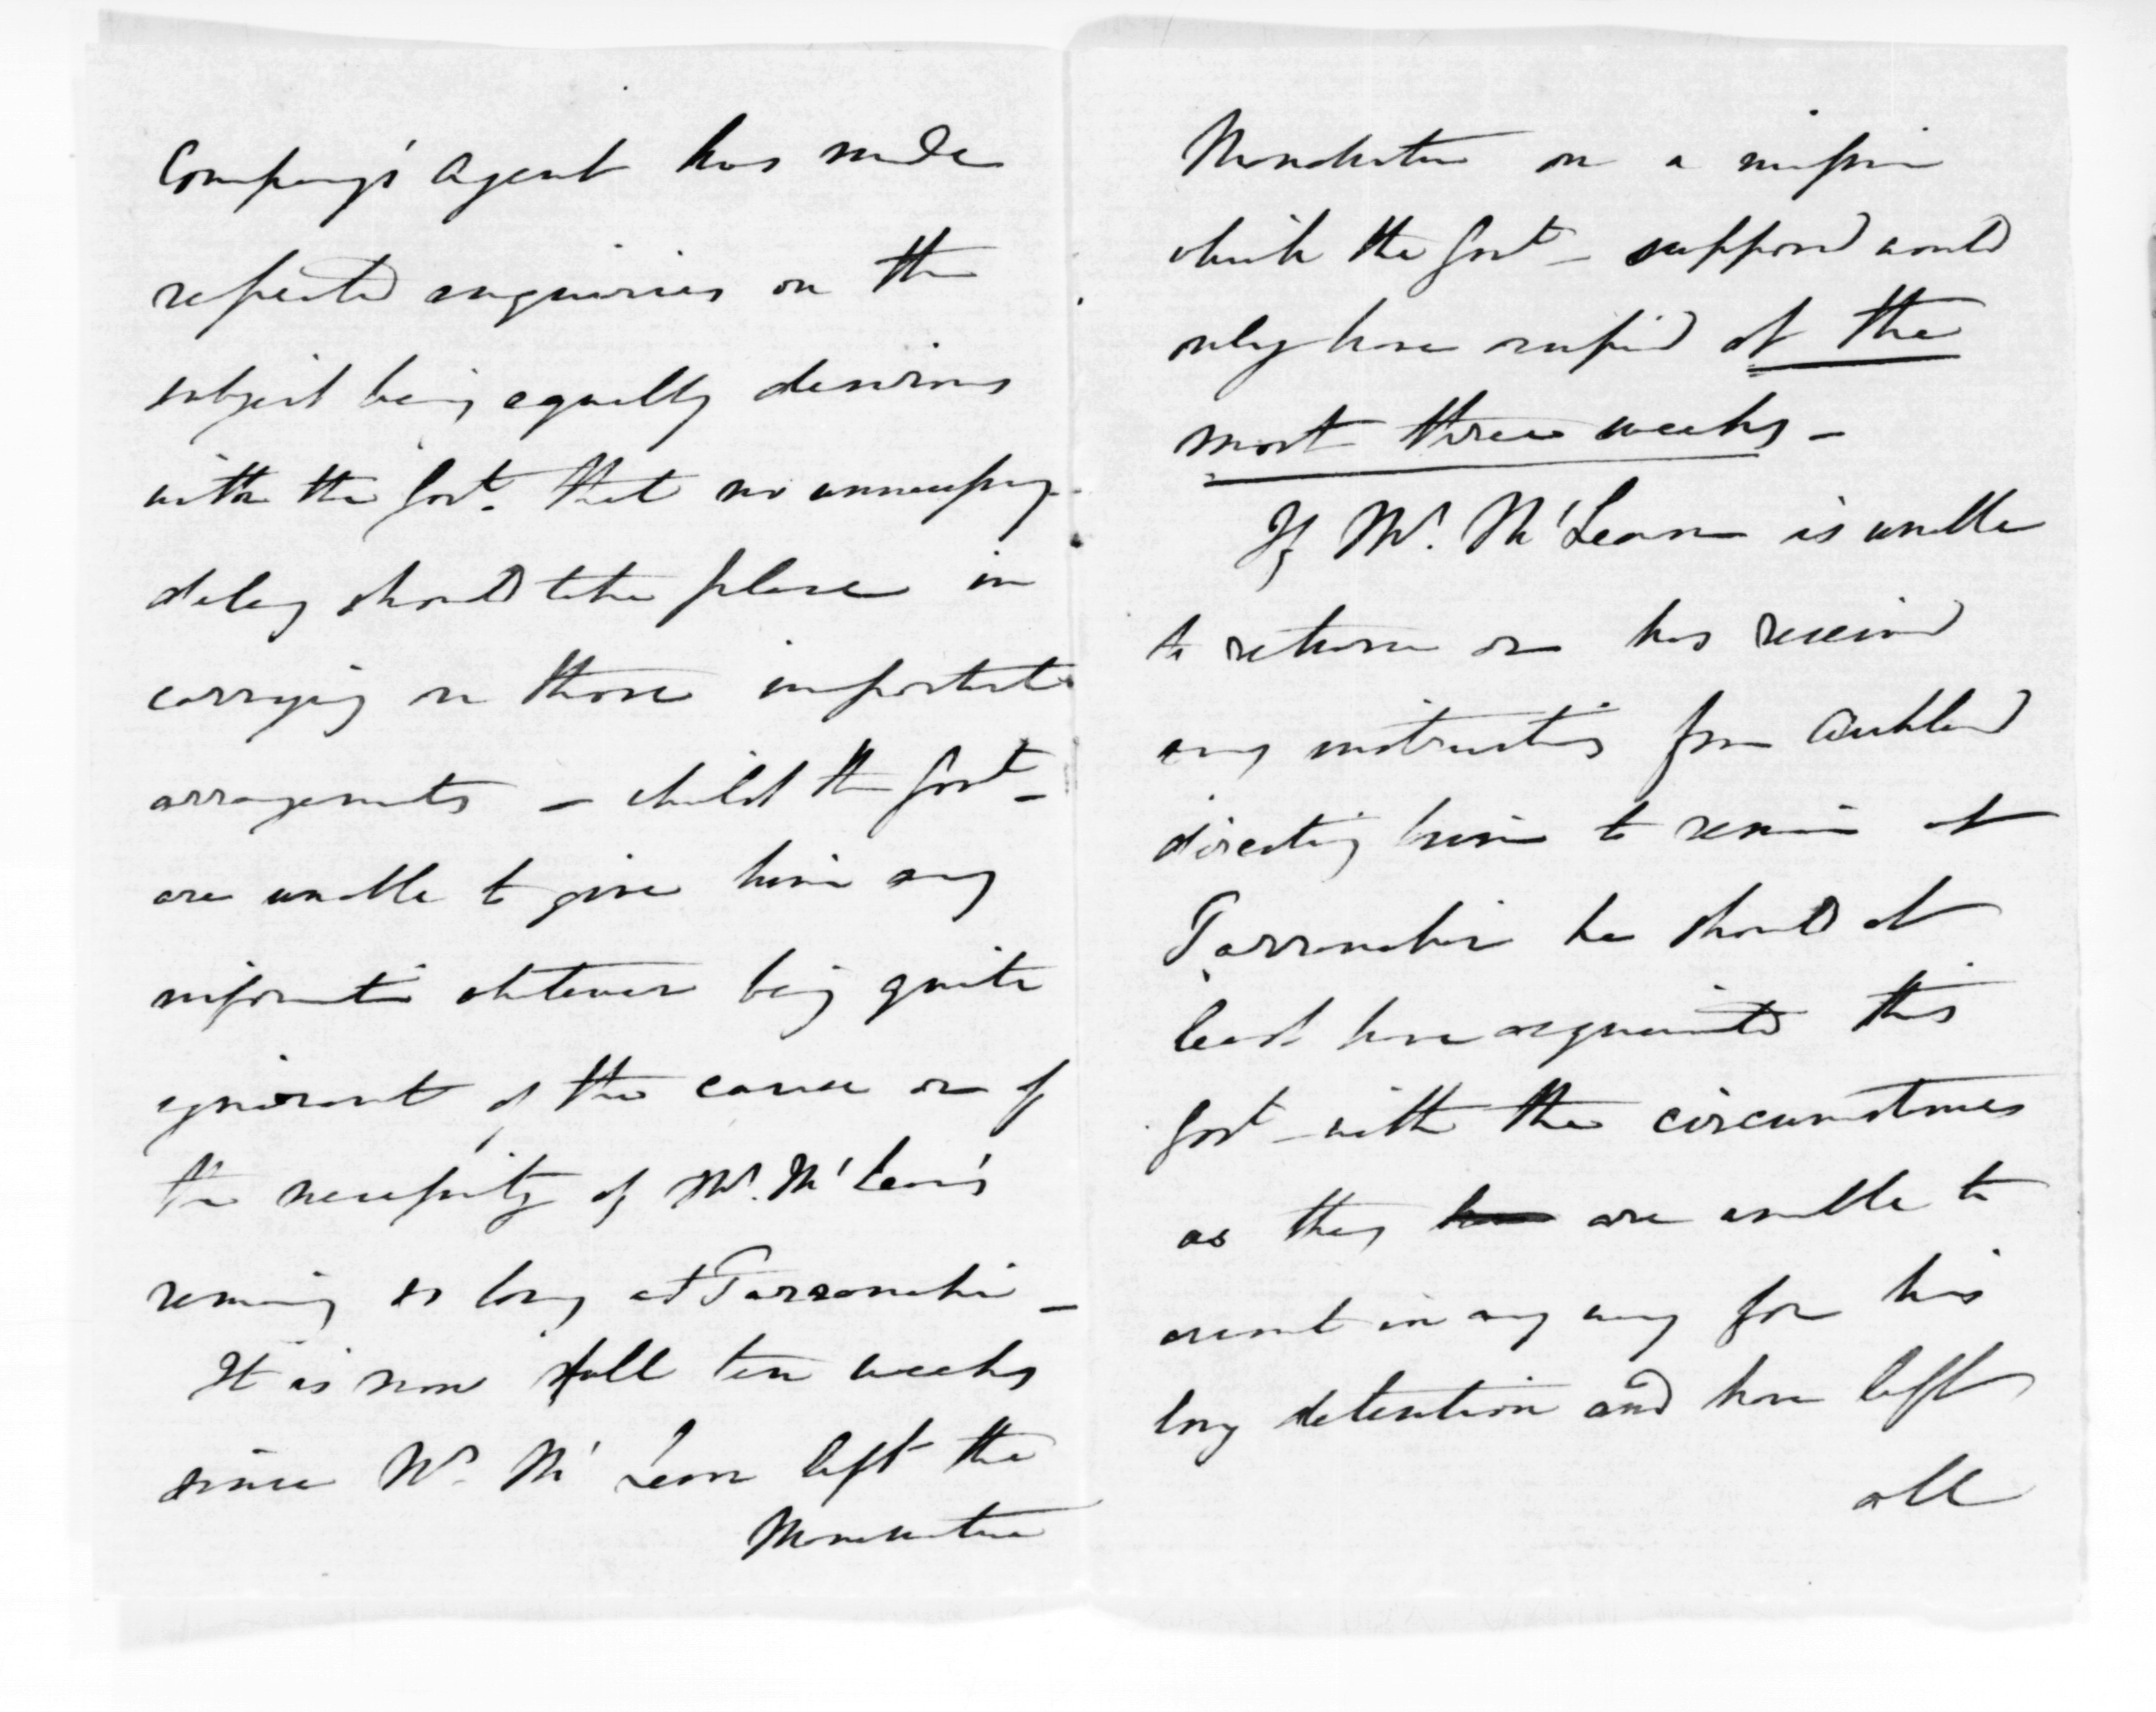 Company's Agent has made
repeated enquiries on the
subject being equally desirous
with the Govt. that no unnecessary
delay should take place in
carrying on those important
arrangements – whilst the Govt –
are unable to give him any
information whatever being quite
ignorant of the cause or of
the necessity of Mr. McLean's
remaing so long at Tarranaki –
It is now full ten weeks
since Mr. Mc Lean left the
Manawatu
Manawatu on a mission
which the Govt – supposed would
only have occupied at the
most three weeks –
If Mr. McLean is unable
to return or has received
any instructions from Auckland
directing him to remain at
Tarranaki he should at
least have acquainted this
Govt – with the circumstances
as they have are unable to
account in any way for his
long detention and have left
all